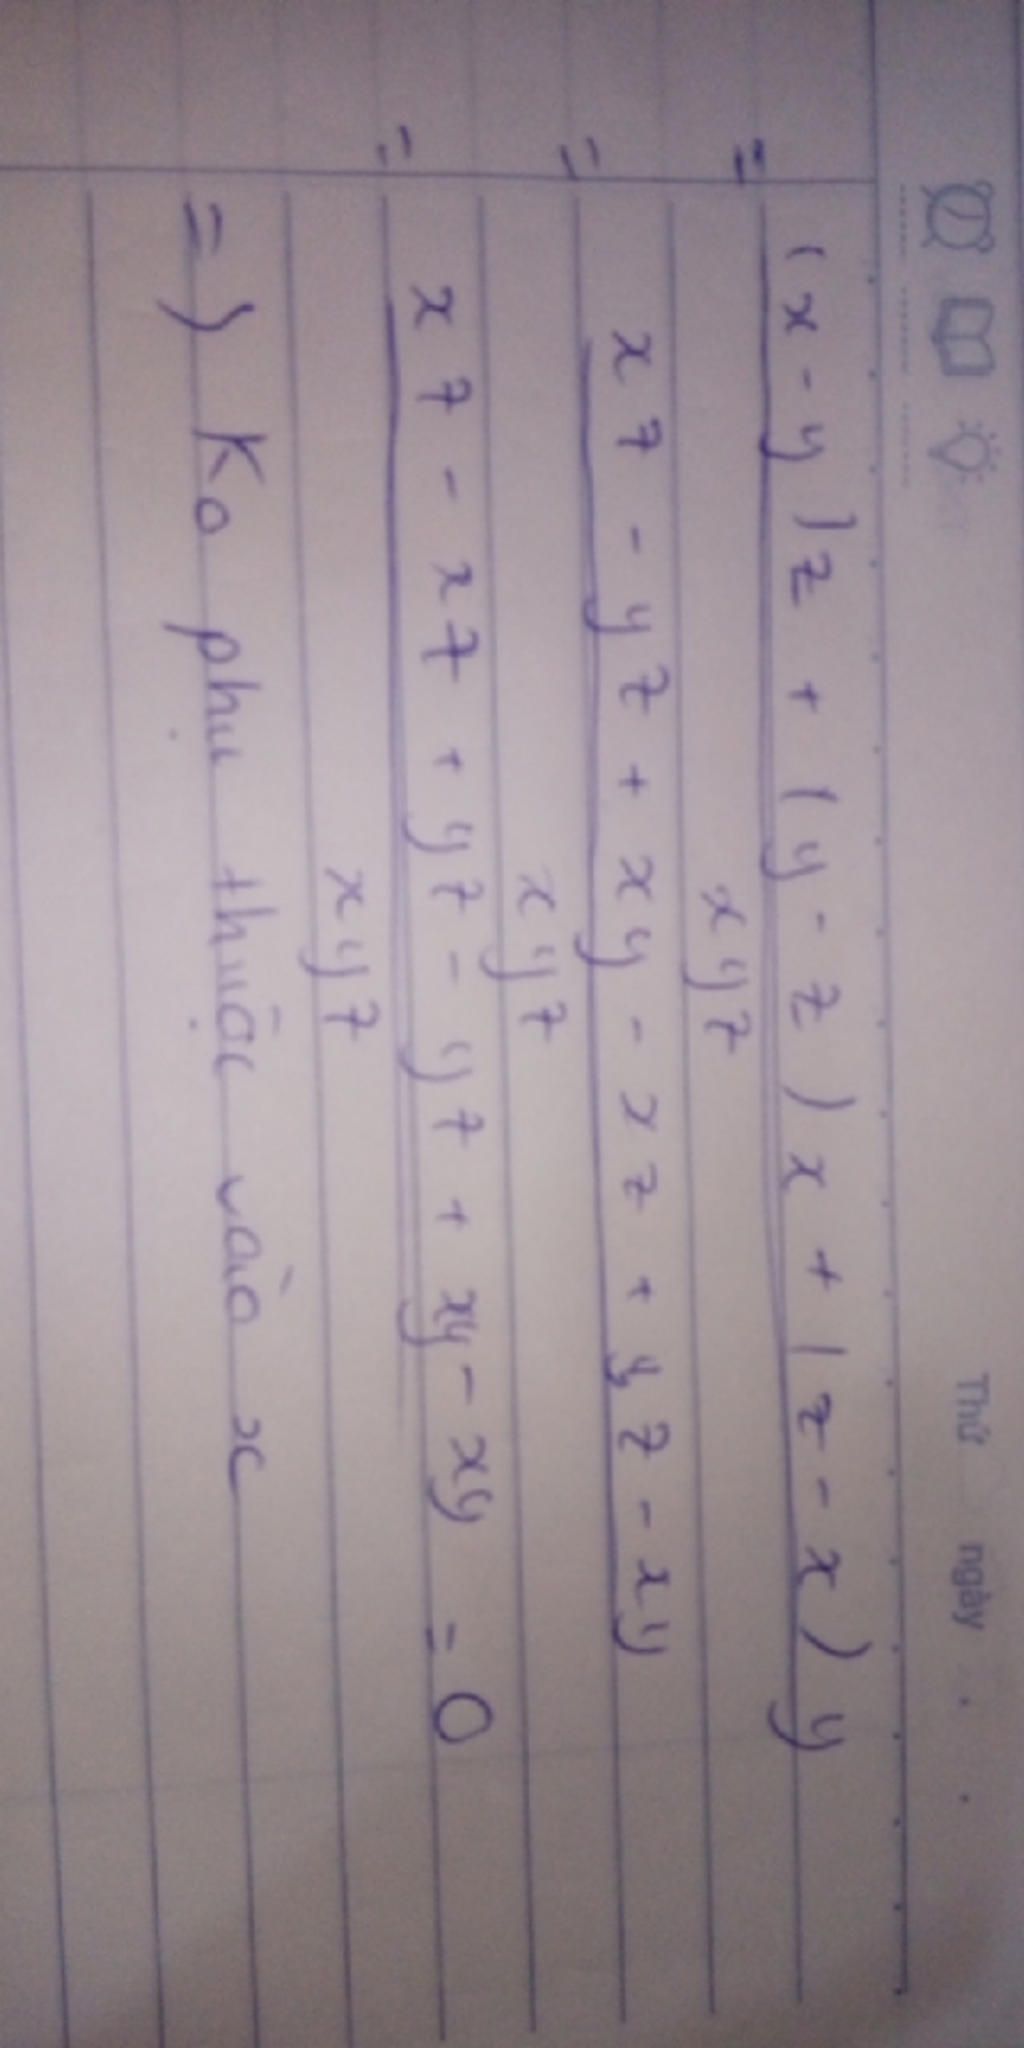 Thứ ngày
= (x-y)z + (y-z)x + (z-x)y
xyz
= xz - yz + xy - xz + yz - xy
xyz
= xz - xz + yz - yz + xy - xy = 0
xyz
=) Ko phụ thuộc vào x